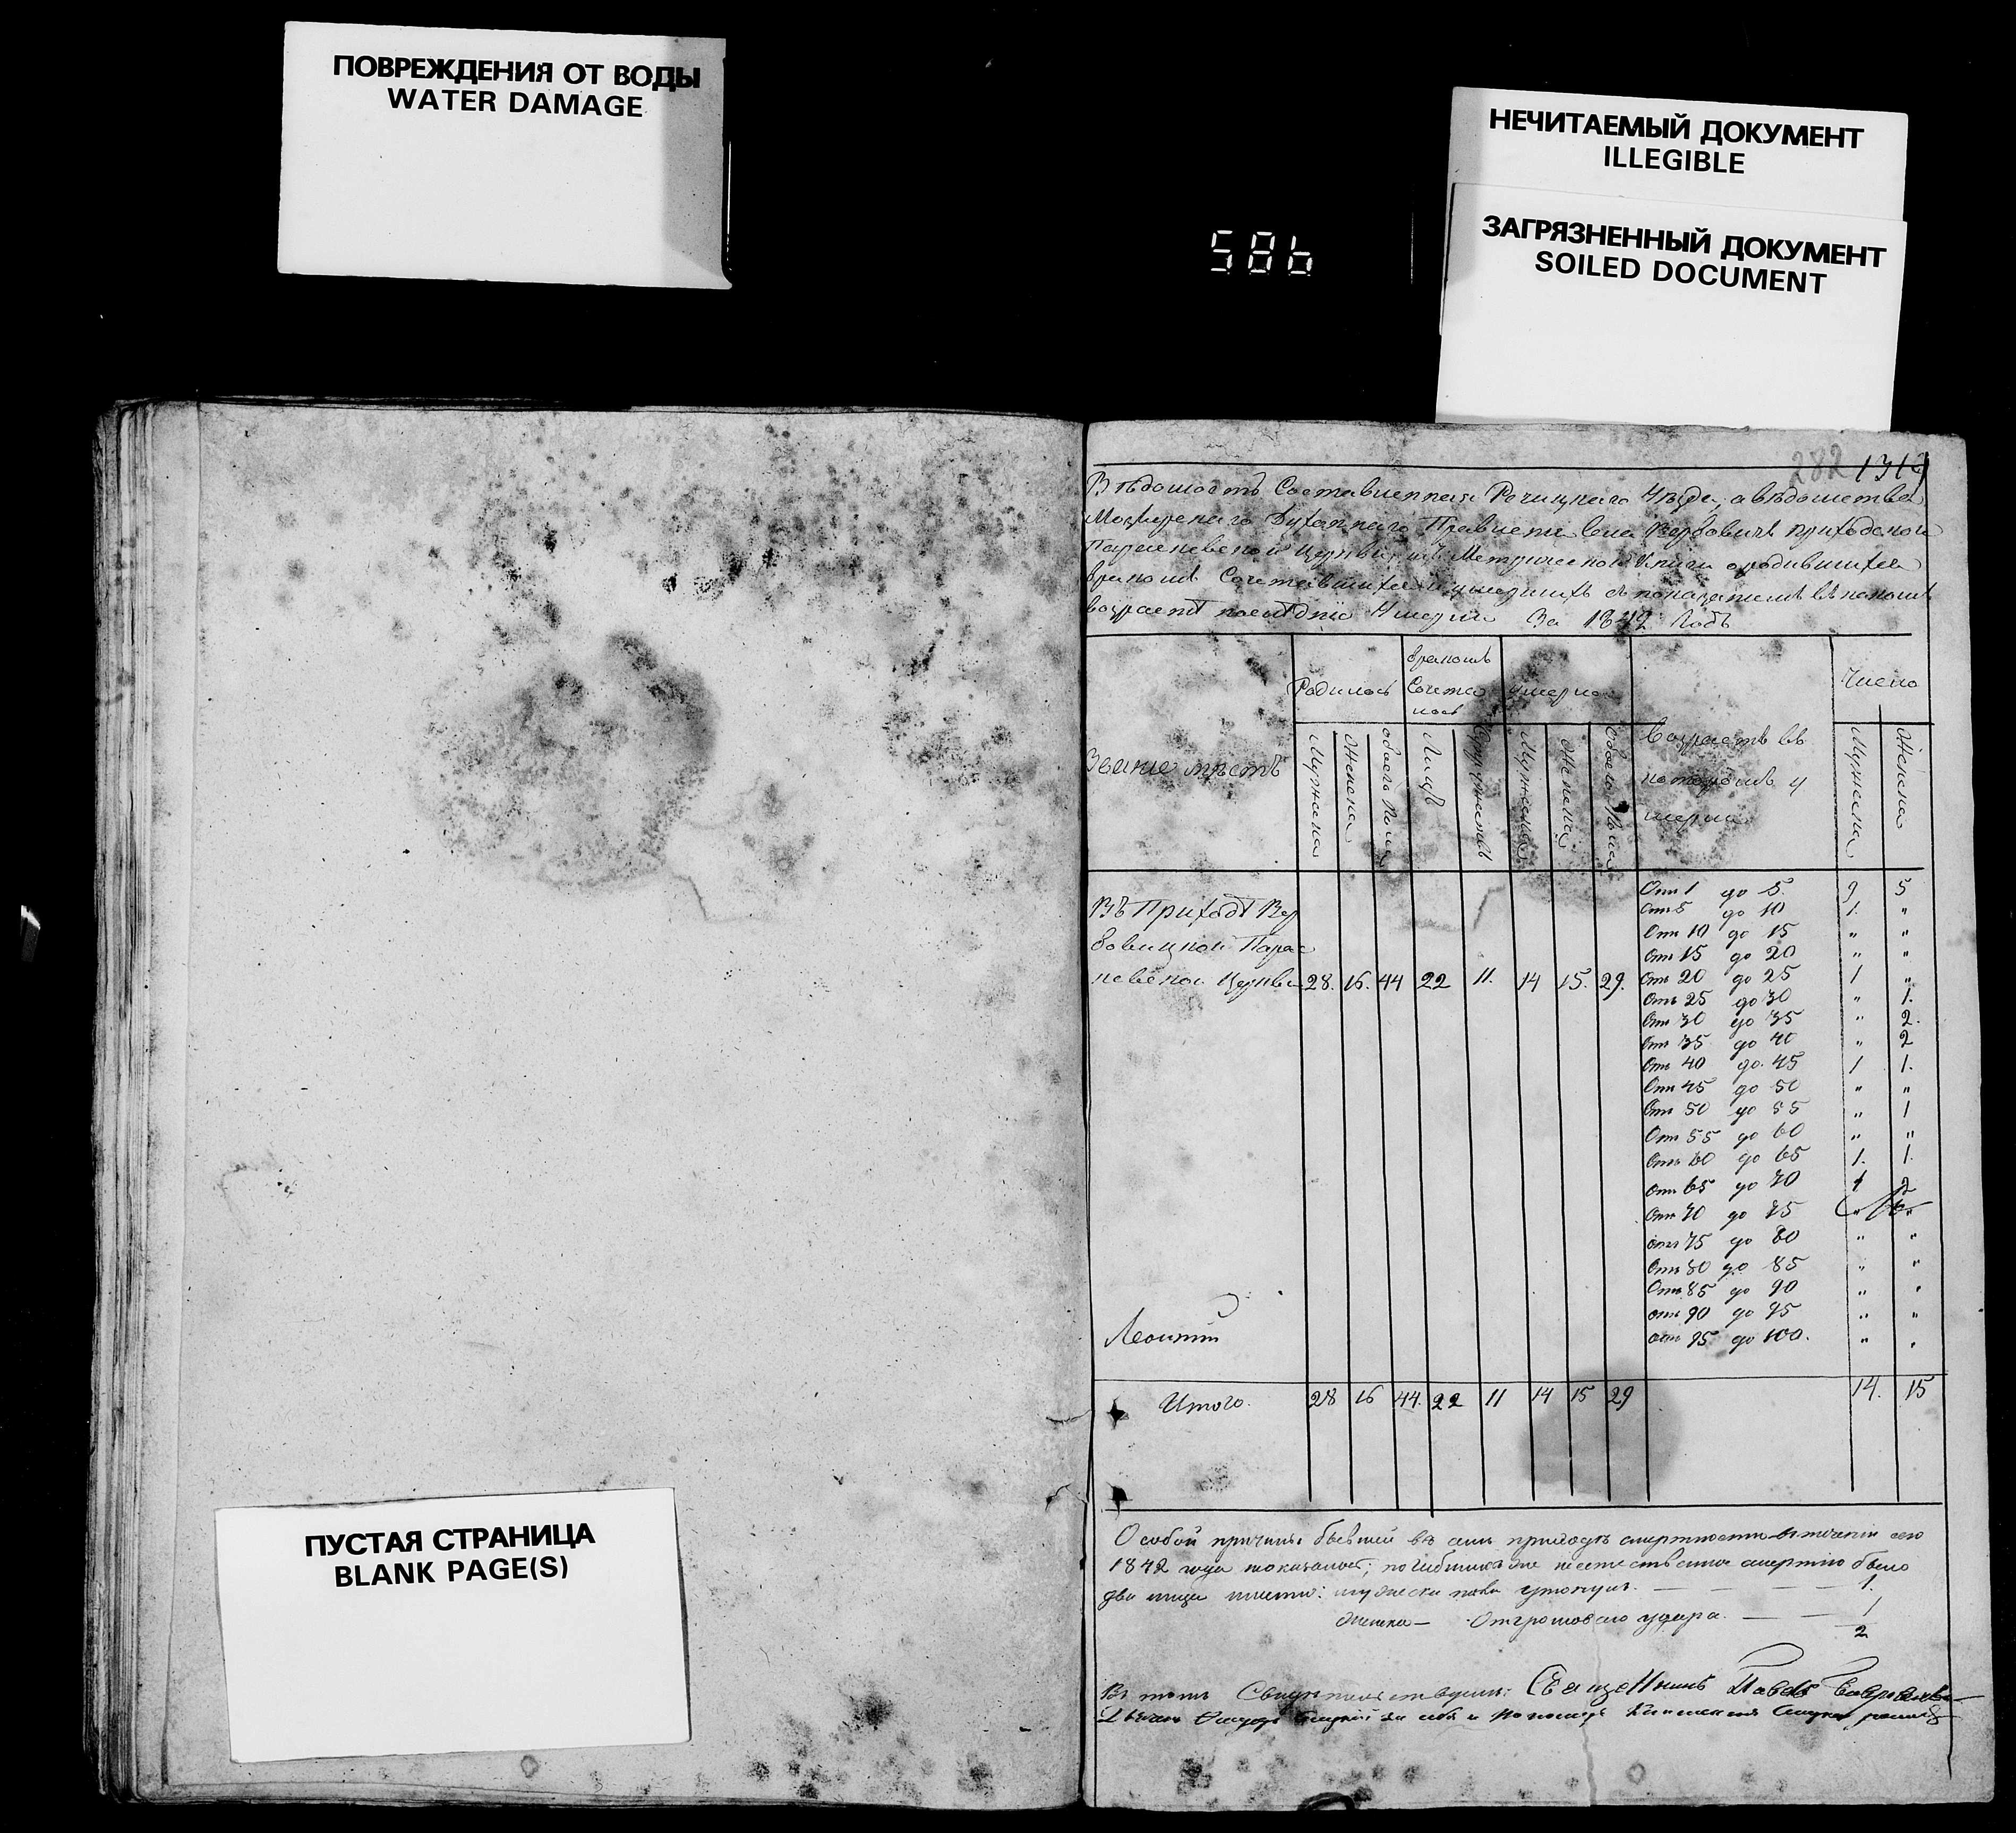 ПОВРЕЖДЕНИЯ ОТ ВОДЫ
WATER DAMAGE
НЕЧИТАЕМЫЙ ДОКУМЕНТ
ILLEGIBLE
ЗАГРЯЗНЕННЫЙ ДОКУМЕНТ
SOILED DOCUMENT
586
282 131
Вѣдомость Составленная Речицкаго Уѣзда, вѣдомства
Мозырскаго Духовнаго Правленія Села Вербовичь приходской
Параскевской Церкви Метрической Книги о родившихся
бракомъ Сочетавшихся и умершихъ съ показаніемъ въ какомъ
возрастѣ послѣдніе Умерли За 1842 Годъ
Званіе мѣстъ
Родилось
бракомъ Сочета лось
умерло
Возрастъ въ которомъ умерли
Число
Мужеска
Женска
обоего Пола
Лицъ
Супружествъ
Мужеска
Женска
Обоего Пола
Мужеска
Женска
Въ Приходѣ Вер
бовицкой Парас
кевской Церкви 28. 16. 44 22 11. 14 15. 29.
Отъ 1 до 5. 9 5
Отъ 5 до 10 1. "
Отъ 10 до 15 " "
Отъ 15 до 20 " "
Отъ 20 до 25 1 "
Отъ 25 до 30 " 1.
Отъ 30 до 35 " 2.
Отъ 35 до 40 " 2
Отъ 40 до 45 1 1.
Отъ 45 до 50 " "
Отъ 50 до 55 " 1
Отъ 55 до 60 " "
Отъ 60 до 65 1. 1.
Отъ 65 до 70 1 2
Отъ 70 до 75 " "
Отъ 75 до 80 " "
Отъ 80 до 85 " "
Отъ 85 до 90 " "
отъ 90 до 95 " "
отъ 95 до 100. " "
Итого. 28 16 44. 22 11 14 15 29 14. 15
Особой причины бывшей въ семъ приходѣ смертности въ теченіи сего
1842 года не естественною смертію было
два лица мужеска пола утонулъ. — — — 1.
женска — Отъ громоваго удара. — — 1
2
Въ томъ Священникъ Павелъ
ПУСТАЯ СТРАНИЦА
BLANK PAGE(S)